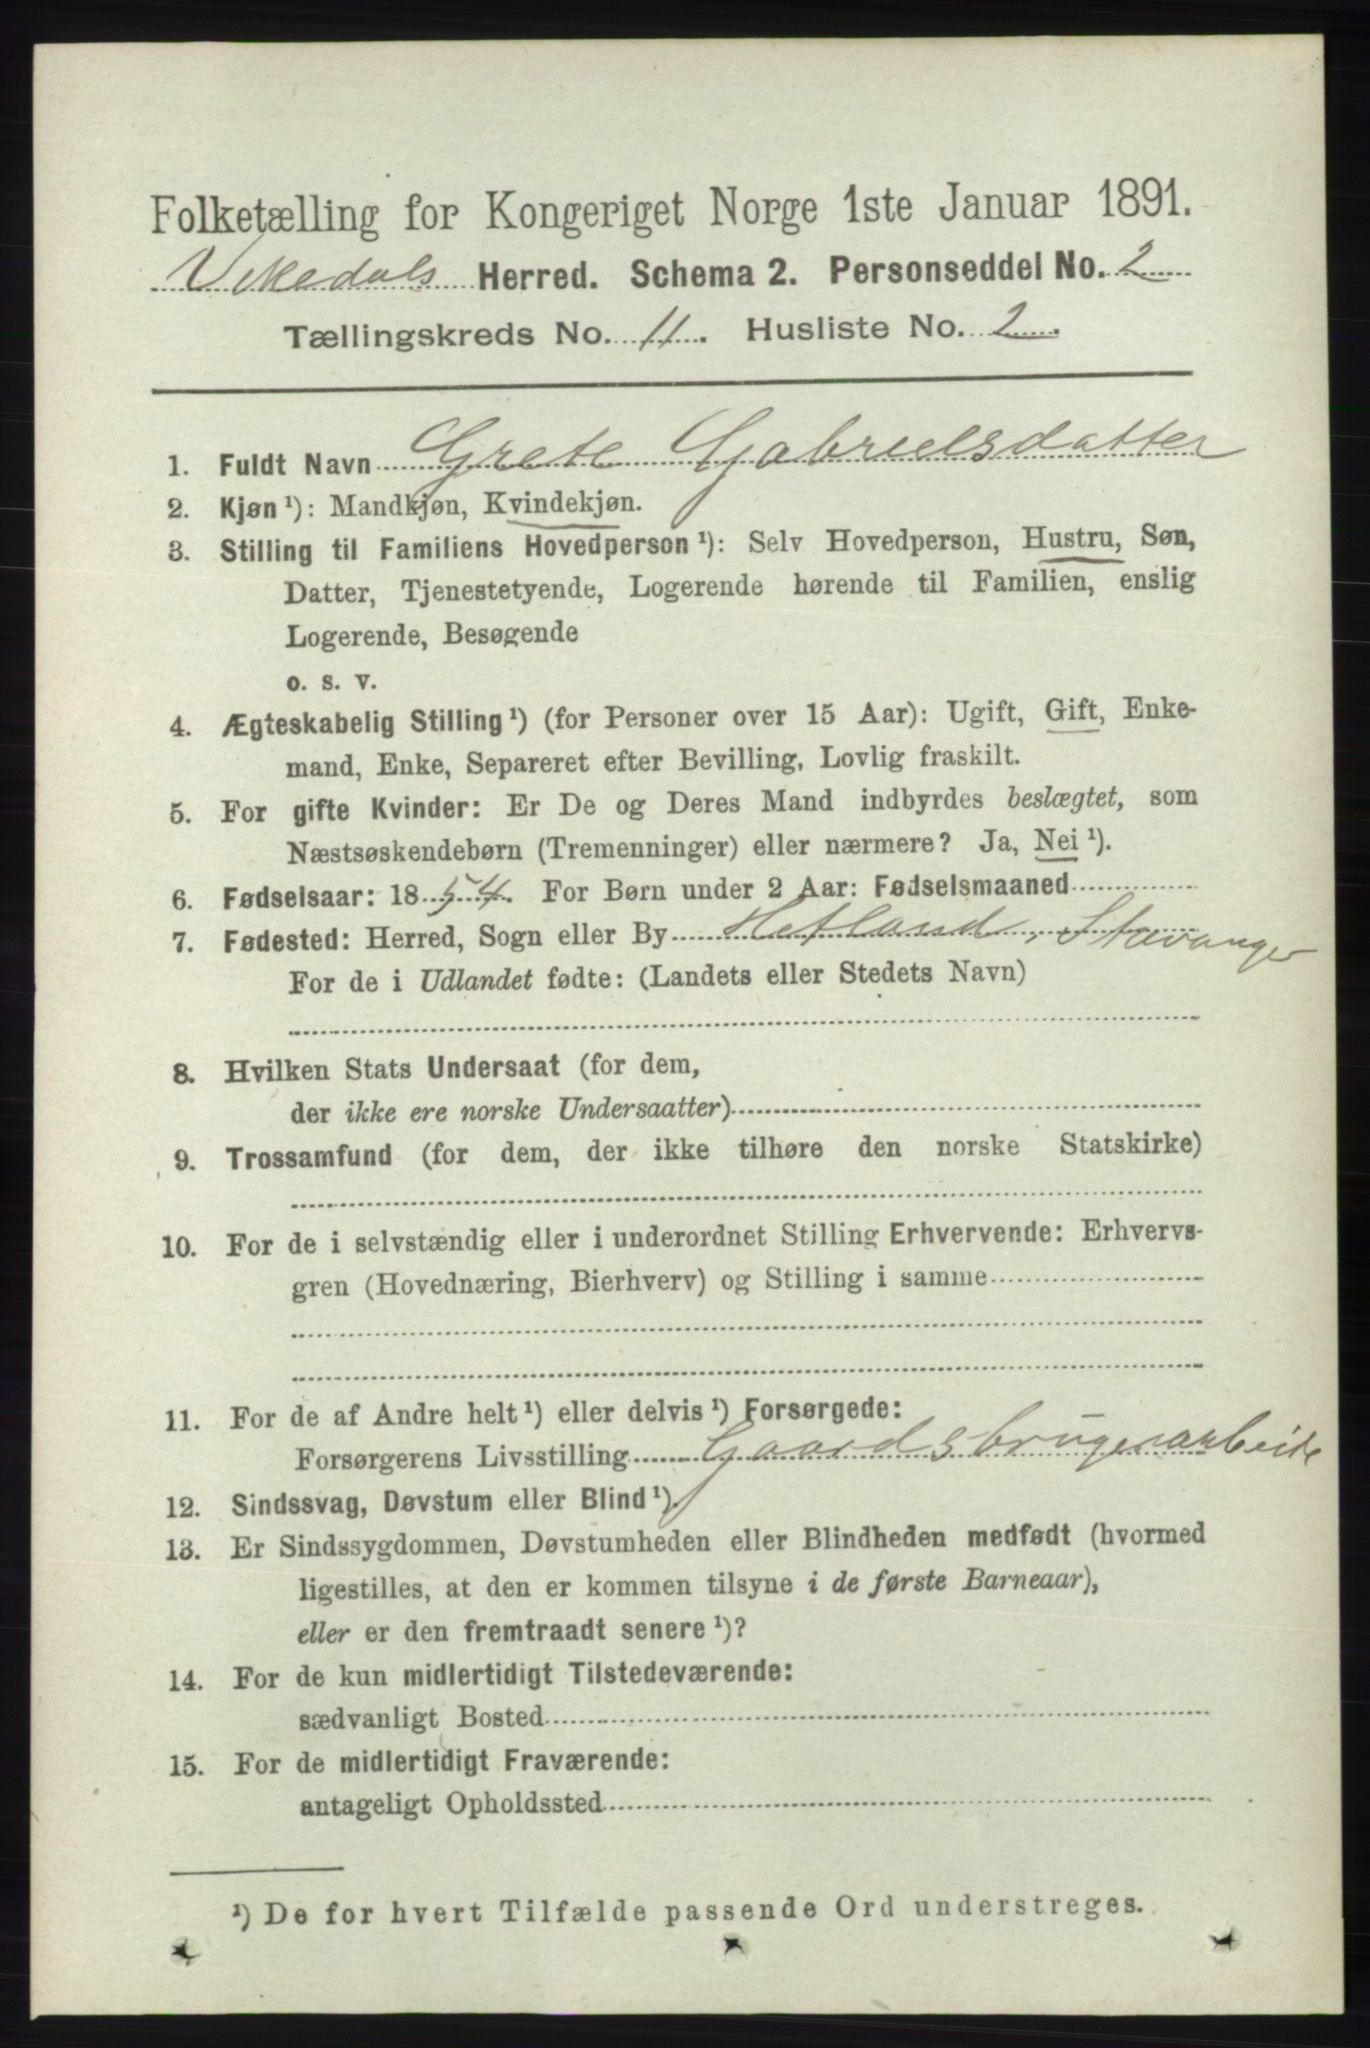 Folketælling for Kongeriget Norge 1ste Januar 1891.
Vikedals Herred. Schema 2. Personseddel No. 2
Tællingskreds No. 11. Husliste No. 2.
1. Fuldt Navn Grete Gabrielsdatter
2. Kjøn ¹): Mandkjøn, Kvindekjøn.
3. Stilling til Familiens Hovedperson ¹): Selv Hovedperson, Hustru, Søn,
Datter, Tjenestetyende, Logerende hørende til Familien, enslig
Logerende, Besøgende
o. s. v.
4. Ægteskabelig Stilling ¹) (for Personer over 15 Aar): Ugift, Gift, Enke-
mand, Enke, Separeret efter Bevilling, Lovlig fraskilt.
5. For gifte Kvinder: Er De og Deres Mand indbyrdes beslægtet, som
Næstsøskendebørn (Tremenninger) eller nærmere? Ja, Nei ¹).
6. Fødselsaar: 1854. For Børn under 2 Aar: Fødselsmaaned
7. Fødested: Herred, Sogn eller By Hetland, Stavanger
For de i Udlandet fødte: (Landets eller Stedets Navn)
8. Hvilken Stats Undersaat (for dem,
der ikke ere norske Undersaatter)
9. Trossamfund (for dem, der ikke tilhøre den norske Statskirke)
10. For de i selvstændig eller i underordnet Stilling Erhvervende: Erhvervs-
gren (Hovednæring, Bierhverv) og Stilling i samme
11. For de af Andre helt ¹) eller delvis ¹) Forsørgede:
Forsørgerens Livsstilling Gaardsbrugerarbeide
12. Sindssvag, Døvstum eller Blind ¹).
13. Er Sindssygdommen, Døvstumheden eller Blindheden medfødt (hvormed
ligestilles, at den er kommen tilsyne i de første Barneaar),
eller er den fremtraadt senere ¹)?
14. For de kun midlertidigt Tilstedeværende:
sædvanligt Bosted
15. For de midlertidigt Fraværende:
antageligt Opholdssted
¹) De for hvert Tilfælde passende Ord understreges.